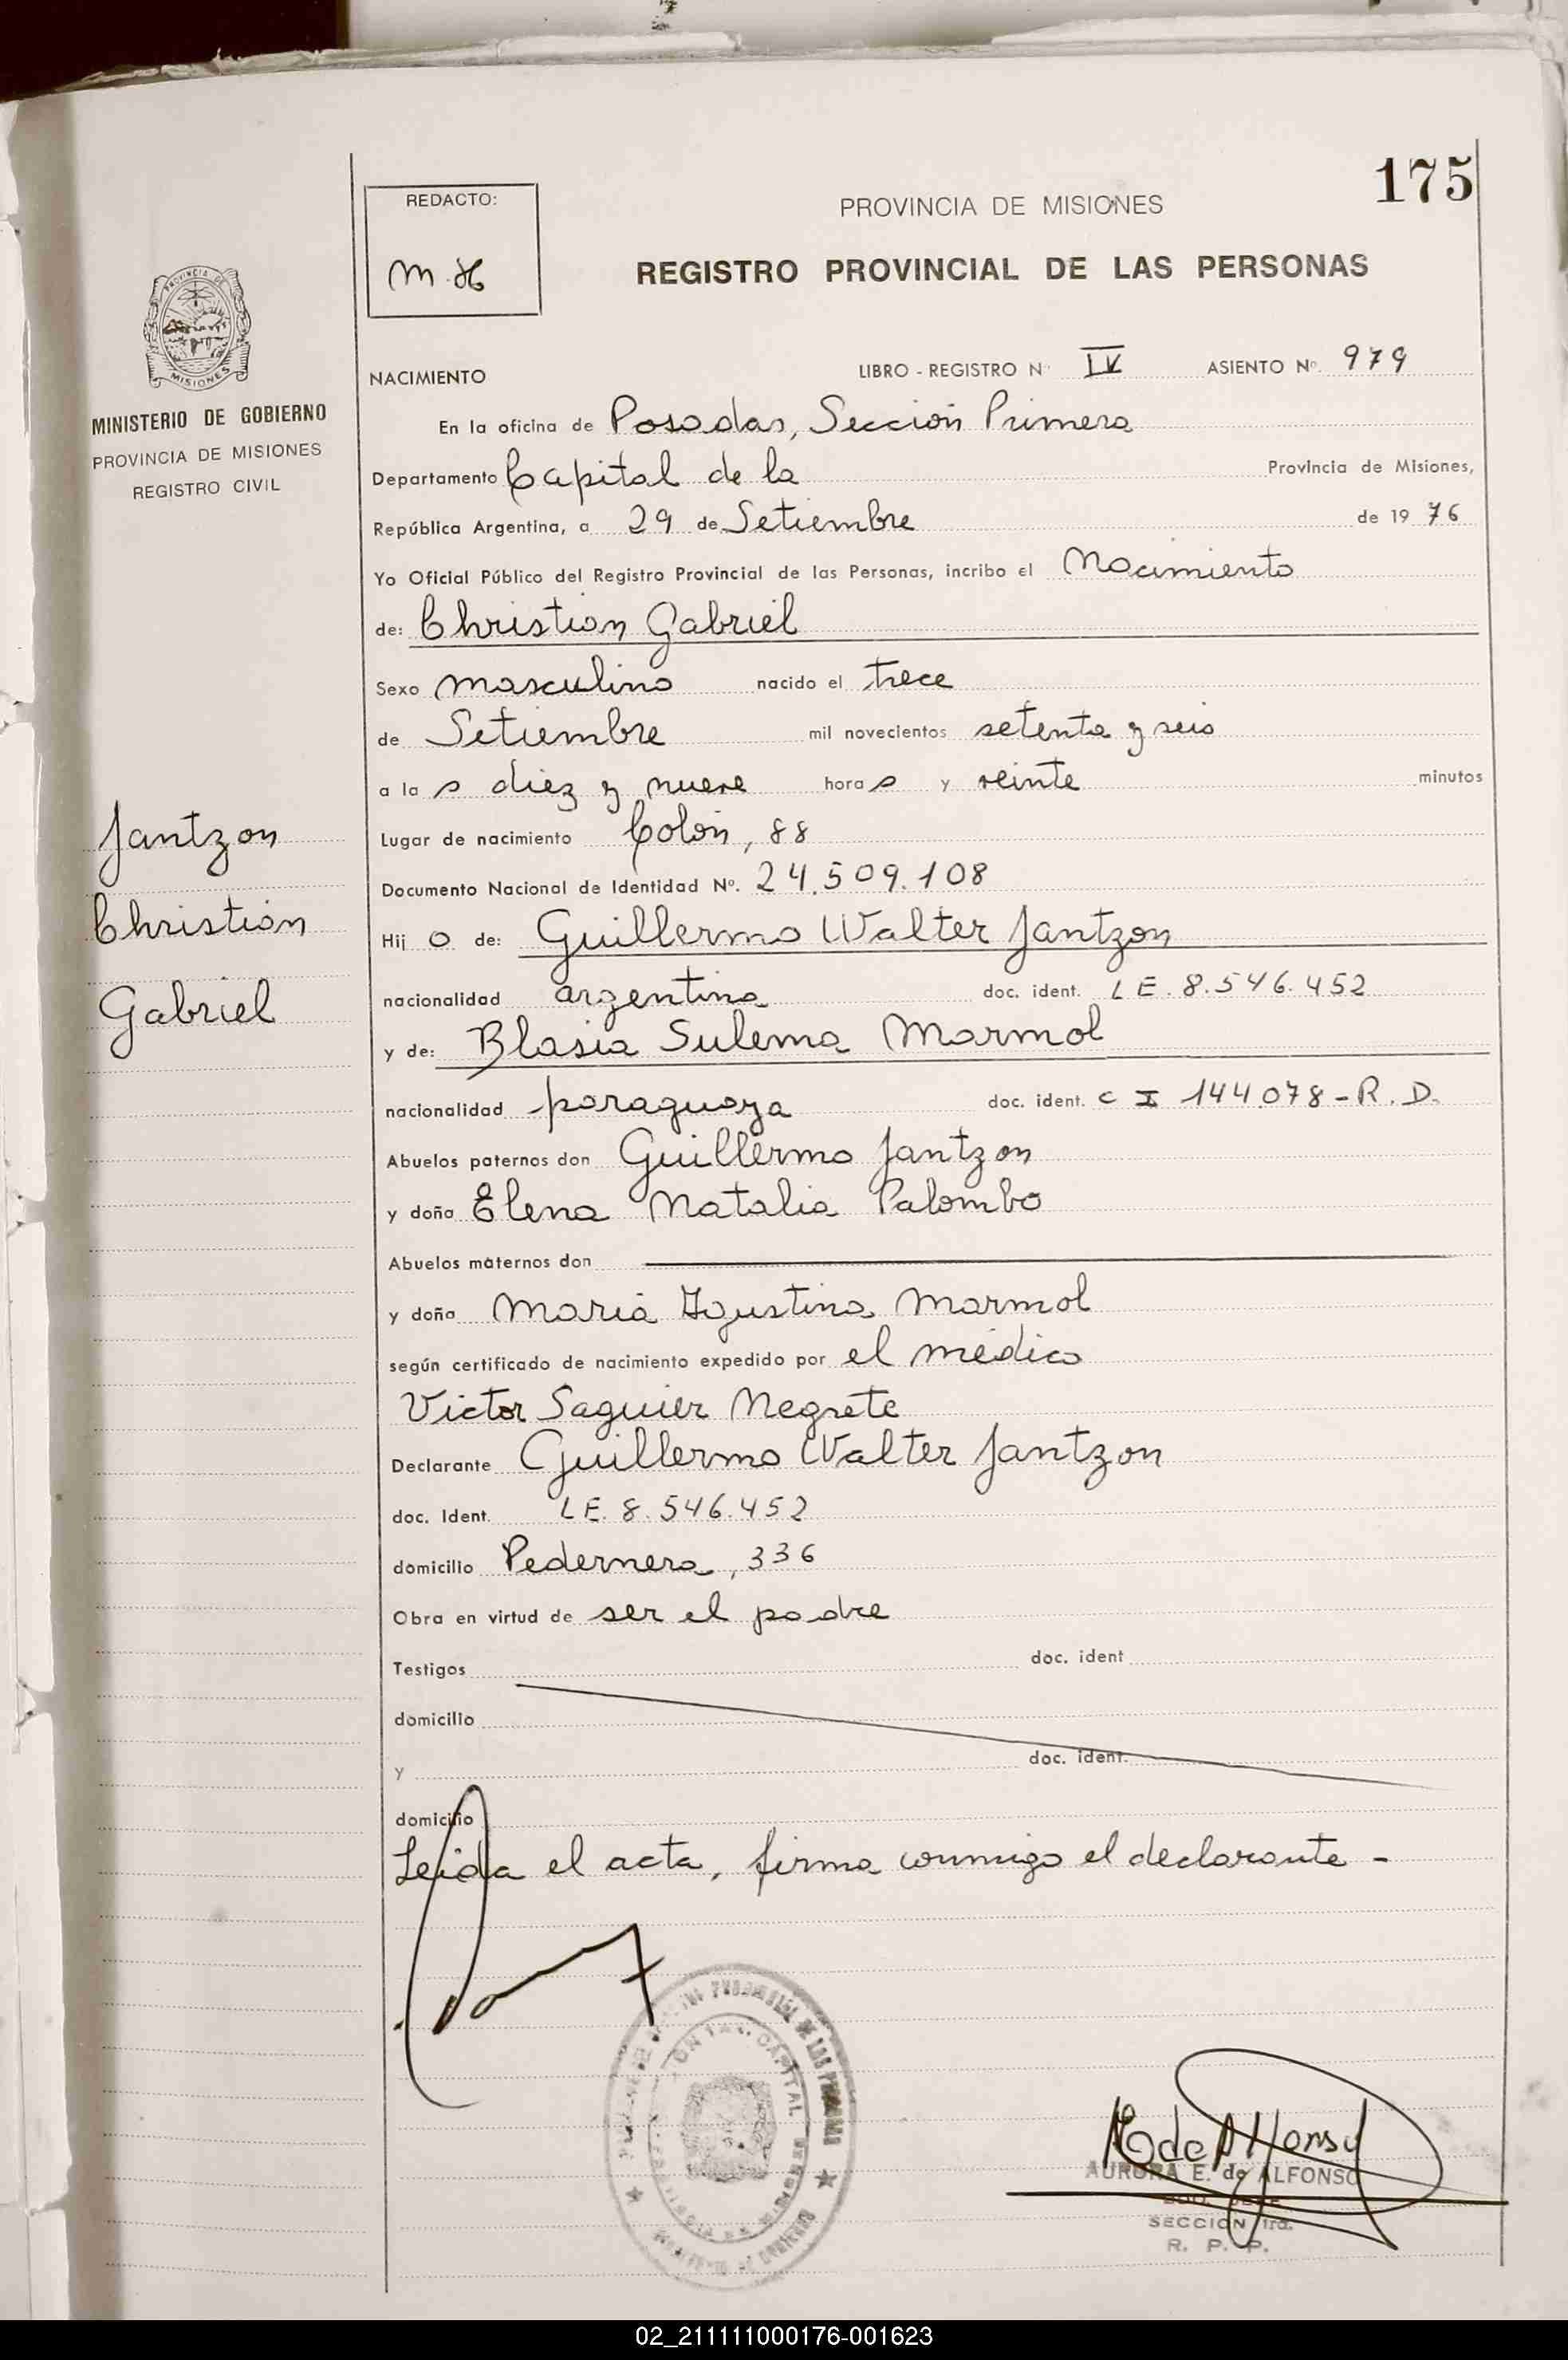 175
REDACTO:
M.H
PROVINCIA DE MISIONES
REGISTRO PROVINCIAL DE LAS PERSONAS
MISIONES
MINISTERIO DE GOBIERNO
PROVINCIA DE MISIONES
REGISTRO CIVIL
NACIMIENTO LIBRO - REGISTRO Nº IV ASIENTO Nº 979
En la oficina de Posadas, Sección Primera
Departamento Capital de la Provincia de Misiones,
República Argentina, a 29 de Setiembre de 19 76
Yo Oficial Público del Registro Provincial de las Personas, incribo el Nacimiento
de: Christian Gabriel
Sexo masculino nacido el trece
de Setiembre mil novecientos setenta y seis
a la s diez y nueve hora s y veinte minutos
Jantzon
Christian
Gabriel
Lugar de nacimiento Colón, 88
Documento Nacional de Identidad Nº. 24.509.108
Hij o de: Guillermo Walter Jantzon
nacionalidad argentina doc. ident. LE. 8.546.452
y de: Blasia Sulema Marmol
nacionalidad paraguaya doc. ident. C I 144.078-R.D.
Abuelos paternos don Guillermo Jantzon
y doña Elena Natalia Palombo
Abuelos maternos don
y doña Maria Agustina Marmol
según certificado de nacimiento expedido por el médico
Victor Saguier Negrete
Declarante Guillermo Walter Jantzon
doc. Ident. LE. 8.546.452
domicilio Pedernera, 336
Obra en virtud de ser el padre
Testigos doc. ident
domicilio
y doc. ident.
domicilio
Leída el acta, firma conmigo el declarante -
CAPITAL
E de Alfonso
AURORA E. de ALFONSO
SECCION 1ra.
R. P. P.
02_211111000176-001623